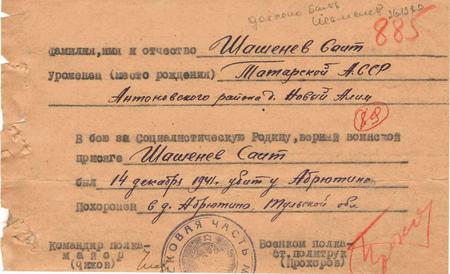 должно быть
885
фамилия, имя и отчество Шашенев Саит
уроженец (место рождения) Татарской АССР
Антоновского района д. Новый Алим
В бою за Социалистическую Родину, верный воинской
присяге Шашенев Саит
был 14 декабря 1941. убит у Абрютино
Похоронен в д. Абрютино, Тульской обл.
СКОВАЯ ЧАСТЬ
Командир полка- Военком полка-
майор ст. политрук
(Чижов) (Прохоров)